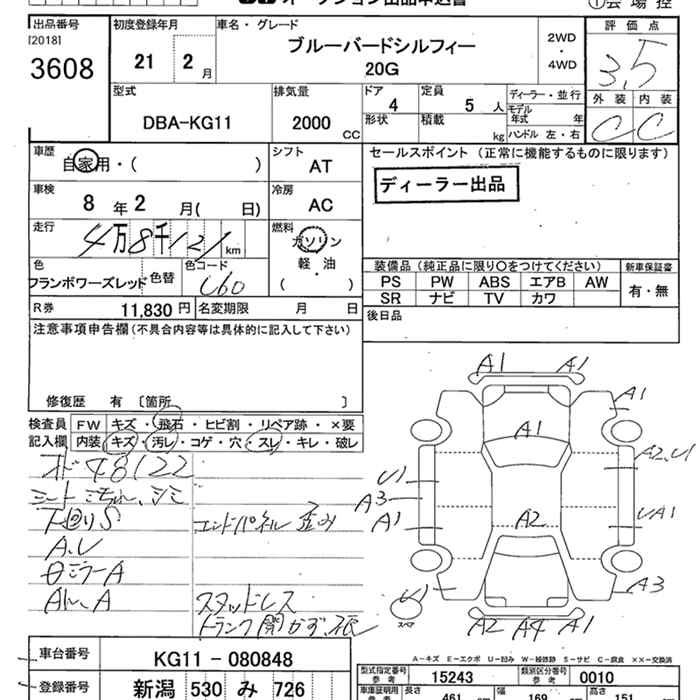 オークション出品申込書
①会場控
出品番号 初度登録年月 車名・グレード 評価点
[2018]
3608 21 2月 ブルーバードシルフィー 2WD・4WD 3.5
20G
型式 排気量 ドア 定員 ディーラー・並行 外装 内装
DBA-KG11 2000 CC 4 5人 モデル年式 年 C C
形状 積載 kg ハンドル 左・右
車歴 シフト セールスポイント (正常に機能するものに限ります)
自家用・( ) AT ディーラー出品
車検 冷房
8年2月( 日) AC
走行 燃料
4万8千121km ガソリン・軽油
( )
装備品 (純正品に限り○をつけてください) 新車保証書
色 色替 色コード
フランボワーズレッド U60
PS PW ABS エアB AW 有・無
SR ナビ TV カワ
R券 11,830円 名変期限 月 日
後日品
注意事項申告欄(不具合内容等は具体的に記入して下さい)
修復歴 有 〔箇所 〕
検査員記入欄 FW キズ・飛石・ヒビ割・リペア跡・×要
内装 キズ・汚レ・コゲ・穴・スレ・キレ・破レ
オド48122
シート汚れ、シミ
下回りS エンドパネル歪み
A.U
日ミラーA
スタッドレス
A1 A1
A1
A1
A2,U1
U1
A3
A1
UA1
A2
U1
A3
スペア
A2 A4 A1
A-キズ E-エクボ U-凹み W-補修跡 S-サビ C-腐食 ××-交換済
車台番号 KG11-080848
型式指定番号 参考 15243 類別区分番号 参考 0010
登録番号 新潟 530 み 726
車庫証明用 長さ 461 cm 幅 169 cm 高さ 151 cm